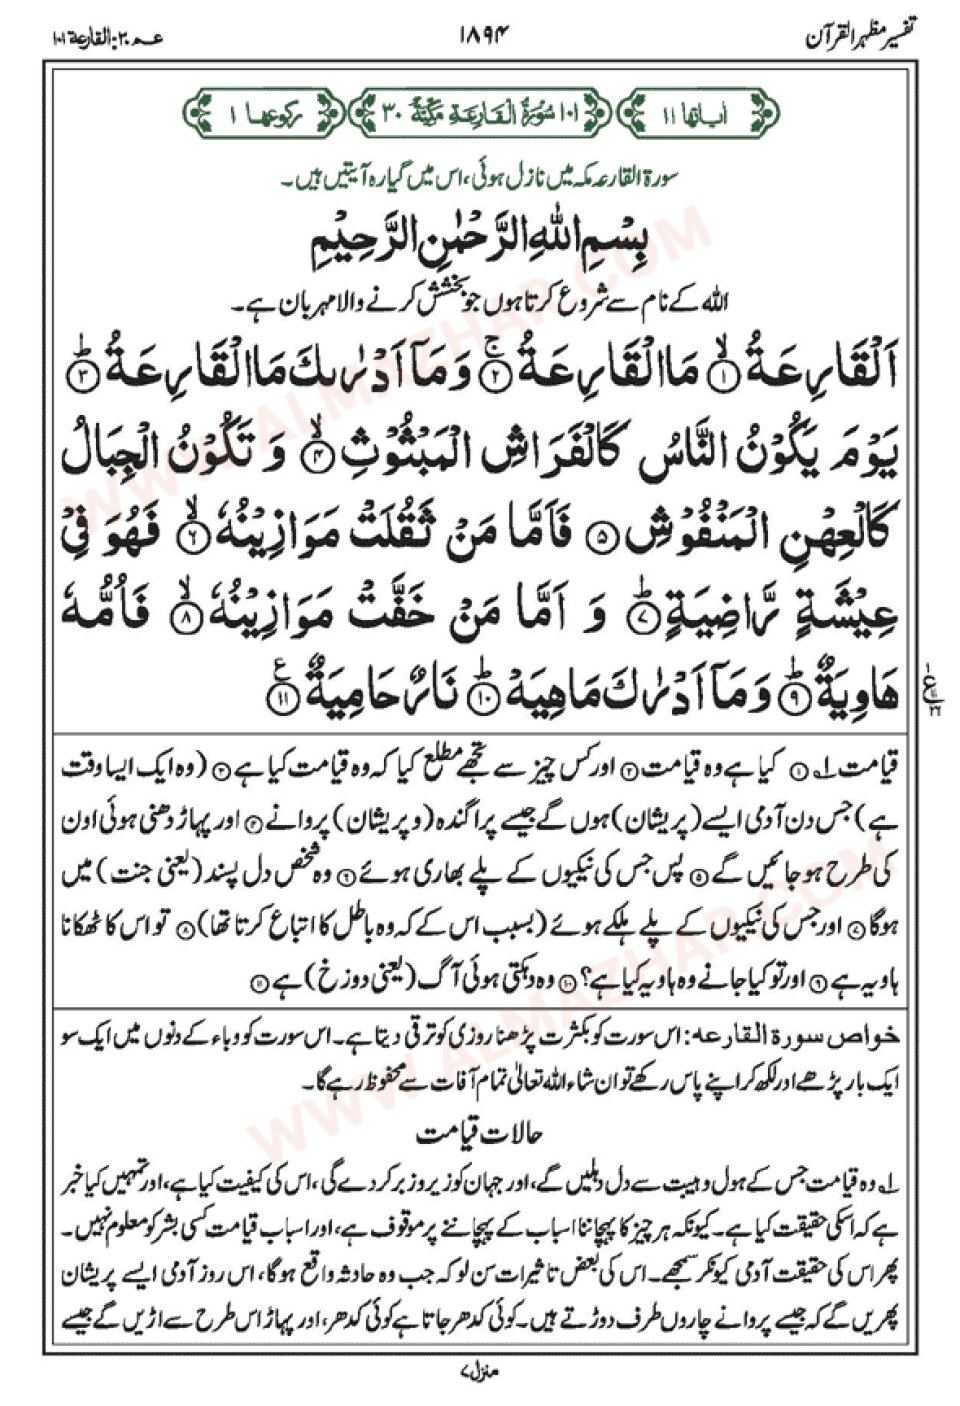 تفسیر مظہر القرآن
۱۸۹۴
عـم ۳۰: القارعة ۱۰۱
اٰیاتھا ۱۱
۱۰۱ سُوْرَةُ الْقَارِعَةِ مَكِّيَّةٌ ۳۰
رکوعھا ۱
سورۃ القارعہ مکہ میں نازل ہوئی، اس میں گیارہ آیتیں ہیں۔
بِسْمِ اللّٰهِ الرَّحْمٰنِ الرَّحِيْمِ
اللہ کے نام سے شروع کرتا ہوں جو بخشش کرنے والا مہربان ہے۔
اَلْقَارِعَةُ ۙ﴿۱﴾ مَا الْقَارِعَةُ ۚ﴿۲﴾ وَمَاۤ اَدْرٰىكَ مَا الْقَارِعَةُ ؕ﴿۳﴾
يَوْمَ يَكُوْنُ النَّاسُ كَالْفَرَاشِ الْمَبْثُوْثِ ۙ﴿۴﴾ وَ تَكُوْنُ الْجِبَالُ
كَالْعِهْنِ الْمَنْفُوْشِ ﴿۵﴾ فَاَمَّا مَنْ ثَقُلَتْ مَوَازِيْنُهٗ ۙ﴿۶﴾ فَهُوَ فِيْ
عِيْشَةٍ رَّاضِيَةٍ ؕ﴿۷﴾ وَ اَمَّا مَنْ خَفَّتْ مَوَازِيْنُهٗ ۙ﴿۸﴾ فَاُمُّهٗ
هَاوِيَةٌ ؕ﴿۹﴾ وَمَاۤ اَدْرٰىكَ مَاهِيَهْ ؕ﴿۱۰﴾ نَارٌ حَامِيَةٌ ۧ﴿۱۱﴾
قیامت ۱؎ ﴿۱﴾ کیا ہے وہ قیامت ﴿۲﴾ اور کس چیز سے تجھے مطلع کیا کہ وہ قیامت کیا ہے ﴿۳﴾ (وہ ایک ایسا وقت
ہے) جس دن آدمی ایسے (پریشان) ہوں گے جیسے پراگندہ (و پریشان) پروانے ﴿۴﴾ اور پہاڑ دھنی ہوئی اون
کی طرح ہو جائیں گے ﴿۵﴾ پس جس کی نیکیوں کے پلے بھاری ہوئے ﴿۶﴾ وہ شخص دل پسند (یعنی جنت) میں
ہوگا ﴿۷﴾ اور جس کی نیکیوں کے پلے ہلکے ہوئے (بسبب اس کے کہ وہ باطل کا اتباع کرتا تھا) ﴿۸﴾ تو اس کا ٹھکانا
ہاویہ ہے ﴿۹﴾ اور تو کیا جانے وہ ہاویہ کیا ہے؟ ﴿۱۰﴾ وہ دہکتی ہوئی آگ (یعنی دوزخ) ہے ﴿۱۱﴾
خواص سورۃ القارعہ: اس سورت کو بکثرت پڑھنا روزی کو ترقی دیتا ہے۔ اس سورت کو وباء کے دنوں میں ایک سو
ایک بار پڑھے اور لکھ کر اپنے پاس رکھے تو ان شاء اللہ تعالیٰ تمام آفات سے محفوظ رہے گا۔
حالات قیامت
۱؎ وہ قیامت جس کے ہول و ہیبت سے دل دہلیں گے، اور جہان کو زیر وزبر کر دے گی، اس کی کیفیت کیا ہے، اور تمہیں کیا خبر
ہے کہ اسکی حقیقت کیا ہے۔ کیونکہ ہر چیز کا پہچاننا اسباب کے پہچاننے پر موقوف ہے، اور اسباب قیامت کسی بشر کو معلوم نہیں۔
پھر اس کی حقیقت آدمی کیونکر سمجھے۔ اس کی بعض تاثیرات سن لو کہ جب وہ حادثہ واقع ہوگا، اس روز آدمی ایسے پریشان
پھریں گے کہ جیسے پروانے چاروں طرف دوڑتے ہیں۔ کوئی کدھر جاتا ہے کوئی کدھر، اور پہاڑ اس طرح سے اڑیں گے جیسے
منزل ۷
WWW.ALMAZHAR.COM
WWW.ALMAZHAR.COM